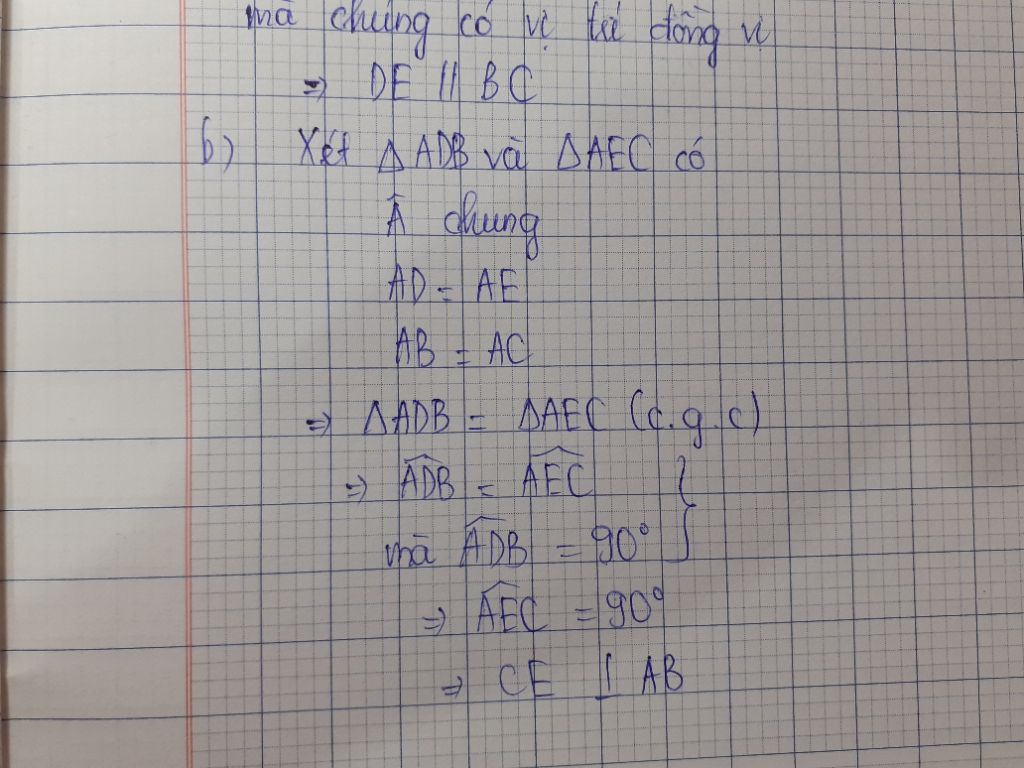 mà chúng có vị trí đồng vị
⇒ DE // BC
b) Xét △ADB và △AEC có
Â chung
AD = AE
AB = AC
⇒ △ADB = △AEC (c.g.c)
⇒ \widehat{ADB} = \widehat{AEC}
mà \widehat{ADB} = 90°
⇒ \widehat{AEC} = 90°
⇒ CE ⊥ AB